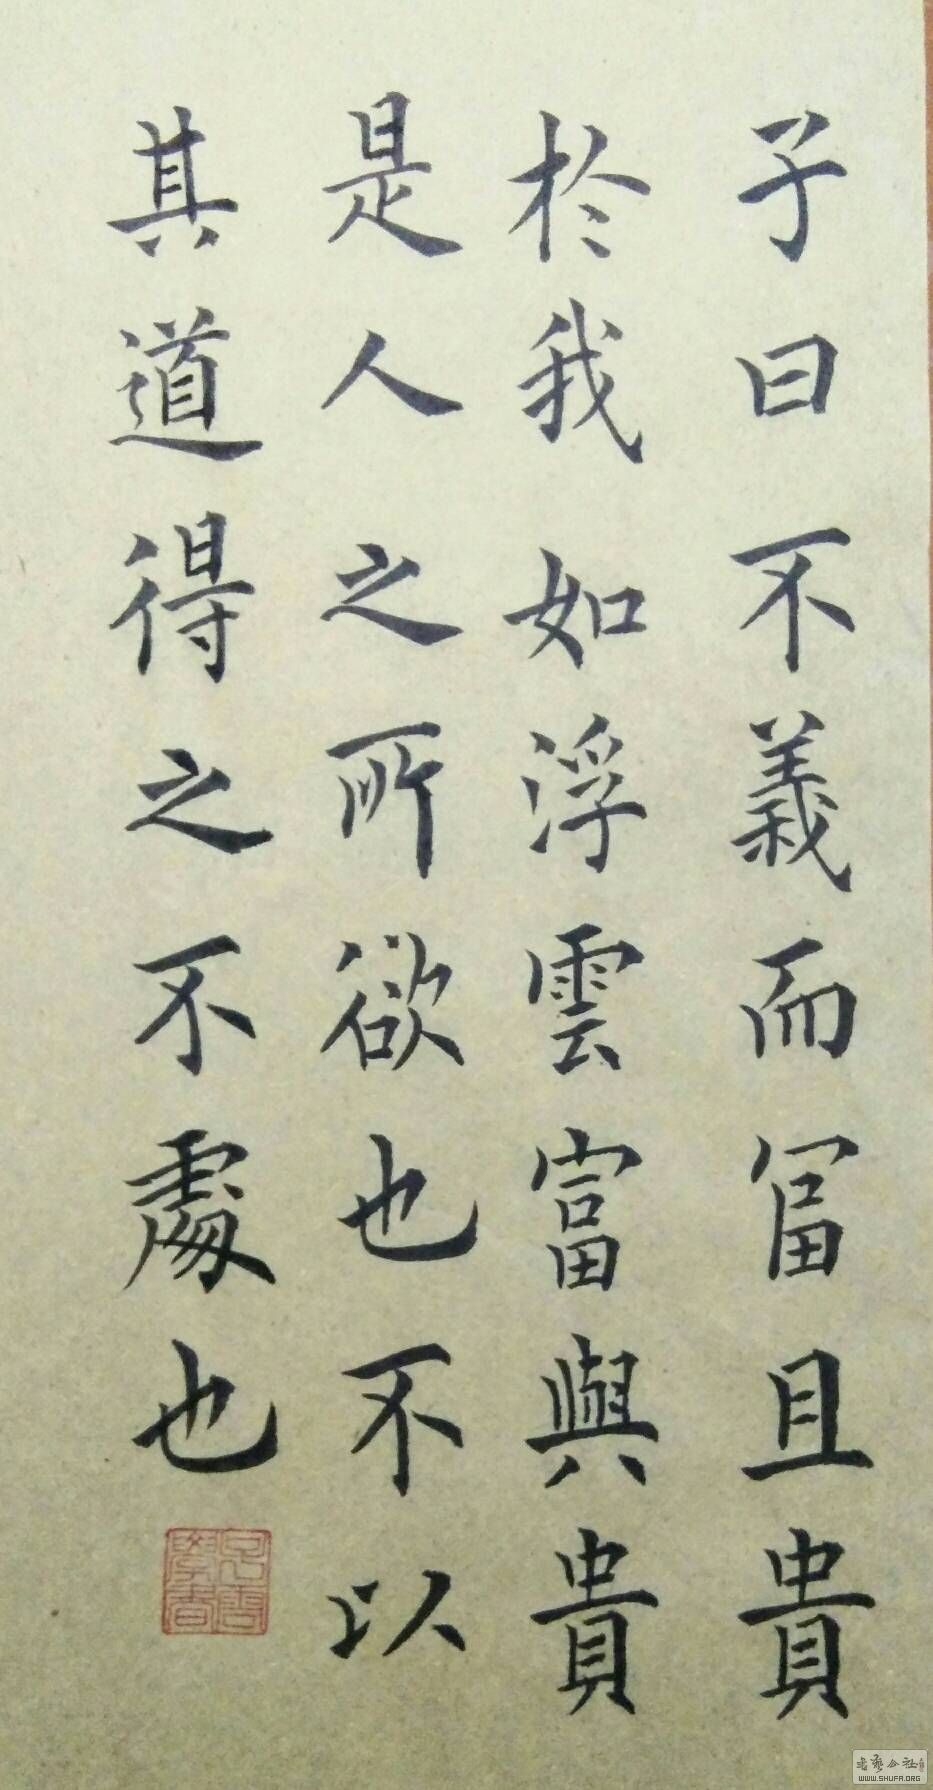 子曰不義而冨且貴
於我如浮雲富與貴
是人之所欲也不以
其道得之不處也
WWW.SHUFA.ORG